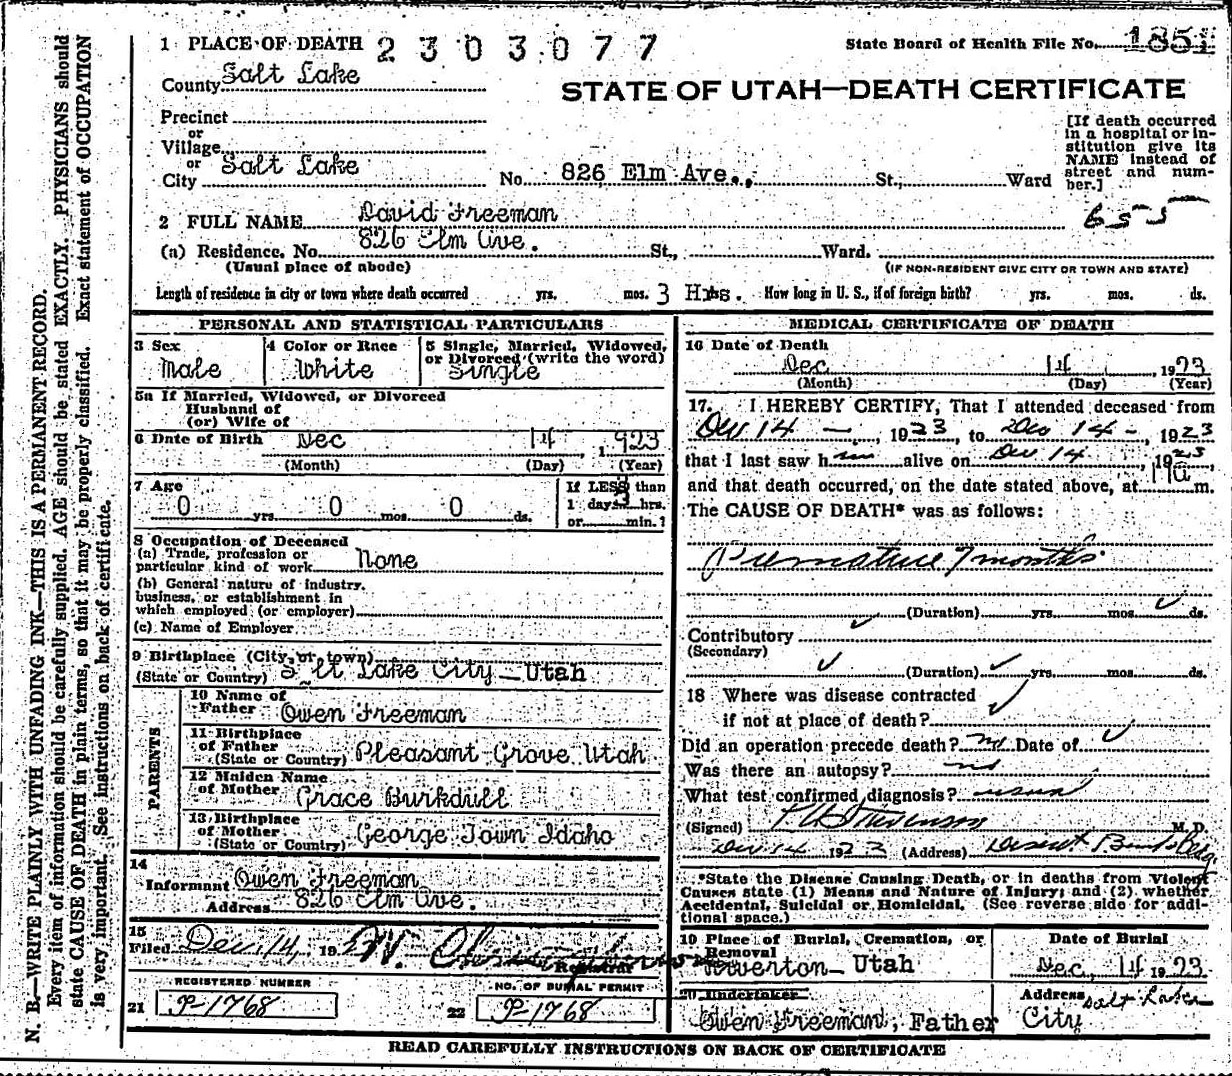 1 PLACE OF DEATH 2 3 0 3 0 7 7
State Board of Health File No. 1851
County Salt Lake
STATE OF UTAH—DEATH CERTIFICATE
Precinct
or
Village
or
City Salt Lake No. 826 Elm Ave., St., Ward
[If death occurred
in a hospital or in-
stitution give its
NAME instead of
street and num-
ber.]
655
2 FULL NAME David Freeman
(a) Residence, No. 826 Elm Ave. St., Ward.
(Usual place of abode) (IF NON-RESIDENT GIVE CITY OR TOWN AND STATE)
Length of residence in city or town where death occurred yrs. mos. 3 Hrs. How long in U. S., if of foreign birth? yrs. mos. ds.
PERSONAL AND STATISTICAL PARTICULARS
3 Sex
Male
4 Color or Race
White
5 Single, Married, Widowed,
or Divorced (write the word)
Single
5a If Married, Widowed, or Divorced
Husband of
(or) Wife of
6 Date of Birth Dec 14, 1923
(Month) (Day) (Year)
7 Age
0 yrs. 0 mos. 0 ds.
If LESS than
1 day 3 hrs.
or min.?
8 Occupation of Deceased
(a) Trade, profession or
particular kind of work None
(b) General nature of industry,
business, or establishment in
which employed (or employer)
(c) Name of Employer
9 Birthplace (City, or town)
(State or Country) S lt Lake City—Utah
PARENTS
10 Name of
Father Owen Freeman
11 Birthplace
of Father
(State or Country) Pleasant Grove Utah
12 Maiden Name
of Mother Grace Burkdull
13 Birthplace
of Mother
(State or Country) George Town Idaho
14
Informant Owen Freeman
Address 826 Elm Ave.
15
Filed Dec. 14, 19
Registrar
REGISTERED NUMBER
21 P-1768
NO. OF BURIAL PERMIT
22 P-1768
MEDICAL CERTIFICATE OF DEATH
16 Date of Death
Dec 14, 1923
(Month) (Day) (Year)
17. I HEREBY CERTIFY, That I attended deceased from
Dec 14 -, 1923, to Dec 14 -, 1923
that I last saw him alive on Dec 14, 1923,
and that death occurred, on the date stated above, at m.
The CAUSE OF DEATH* was as follows:
Premature 7 months
(Duration) yrs. mos. ds.
Contributory
(Secondary)
(Duration) yrs. mos. ds.
18 Where was disease contracted
if not at place of death?
Did an operation precede death? no Date of
Was there an autopsy? no
What test confirmed diagnosis? usual
(Signed) Stevenson M. D.
Dec 14 1923 (Address) Deseret Bank Bldg
*State the Disease Causing Death, or in deaths from Violent
Causes state (1) Means and Nature of Injury; and (2) whether
Accidental, Suicidal or Homicidal. (See reverse side for addi-
tional space.)
19 Place of Burial, Cremation, or
Removal
Riverton—Utah
Date of Burial
Dec, 14 1923
20 Undertaker
Owen Freeman, Father
Address Salt Lake
City
READ CAREFULLY INSTRUCTIONS ON BACK OF CERTIFICATE
N. B.—WRITE PLAINLY WITH UNFADING INK—THIS IS A PERMANENT RECORD.
Every item of information should be carefully supplied. AGE should be stated EXACTLY. PHYSICIANS should
state CAUSE OF DEATH in plain terms, so that it may be properly classified. Exact statement of OCCUPATION
is very important. See instructions on back of certificate.